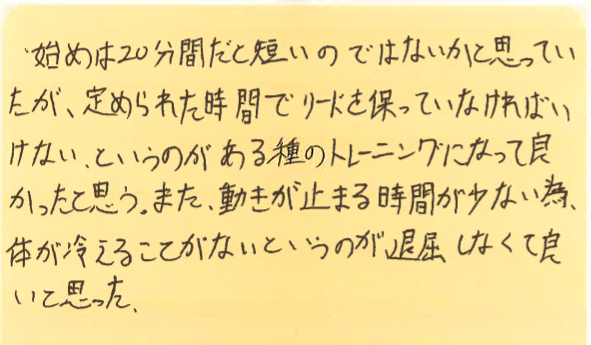 始めは20分間だと短いのではないかと思ってい
たが、定められた時間でリードを保っていなければい
けない、というのがある種のトレーニングになって良
かったと思う。また、動きが止まる時間が少ない為、
体が冷えることがないというのが退屈しなくて良
いと思った。